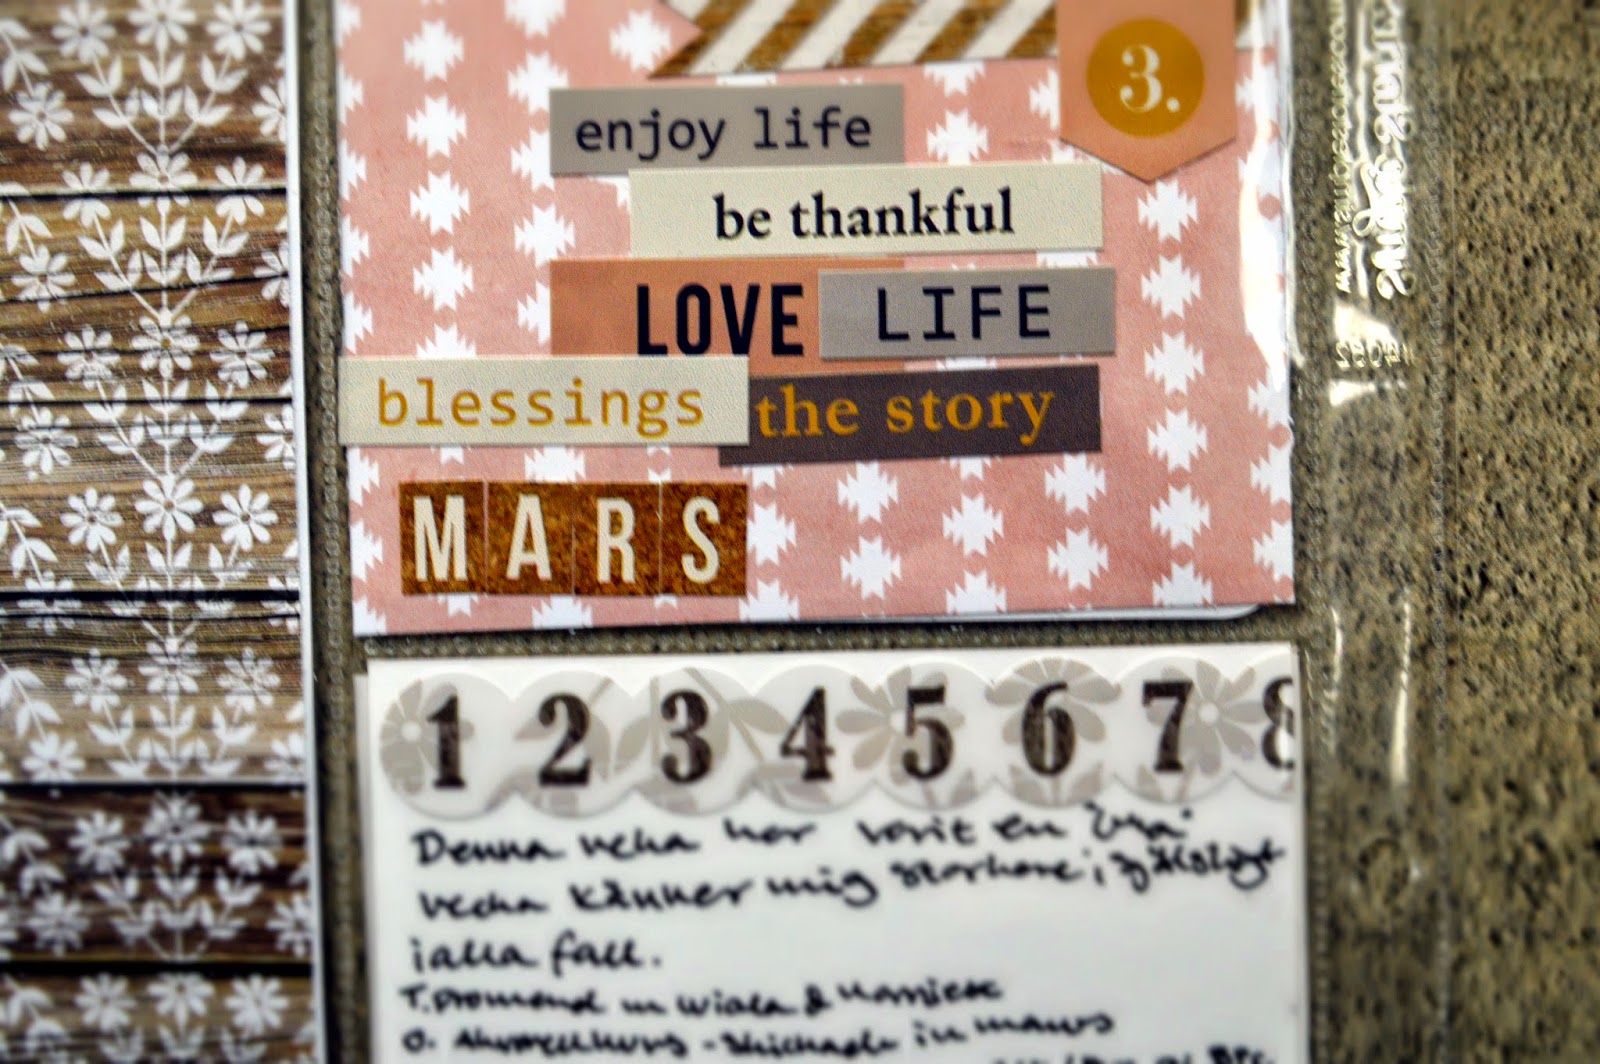 3.
enjoy life
be thankful
LOVE LIFE
blessings the story
MARS
1 2 3 4 5 6 7 8
Denna vecka har varit en bra
vecka känner mig starkare i själsligt
i alla fall.
T. promenad m